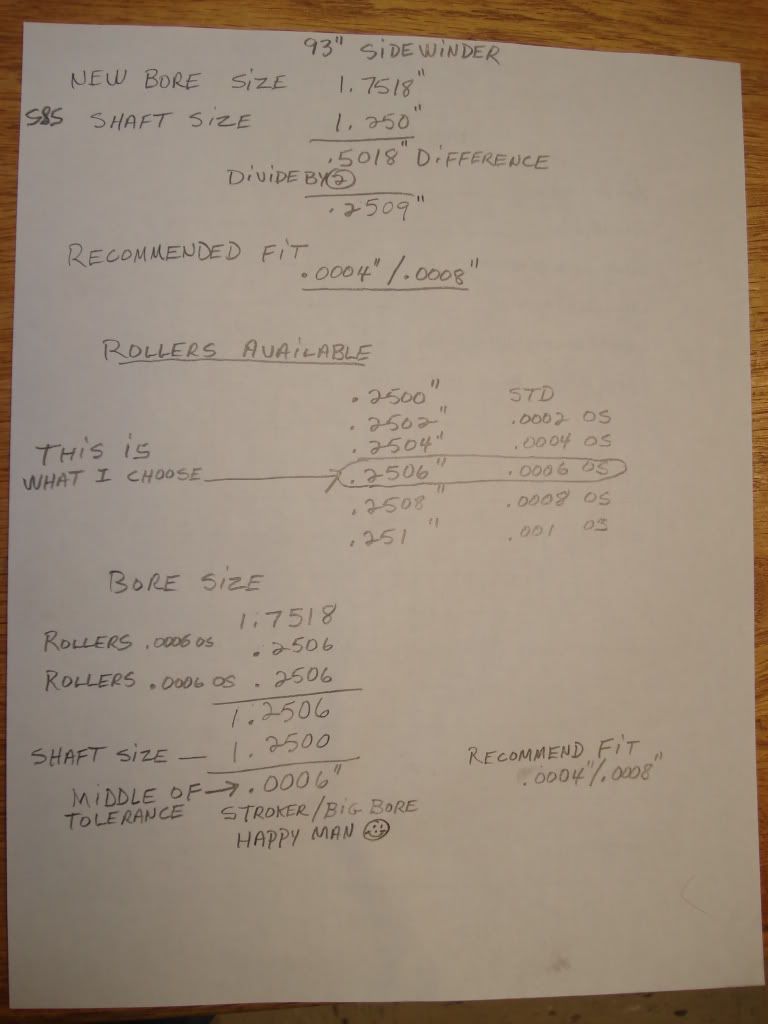 93" SIDEWINDER
NEW BORE SIZE 1.7518"
S&S SHAFT SIZE 1.250"
.5018" DIFFERENCE
DIVIDE BY 2
.2509"
RECOMMENDED FIT
.0004"/.0008"
ROLLERS AVAILABLE
.2500" STD
.2502" .0002 OS
.2504" .0004 OS
THIS IS
WHAT I CHOOSE .2506" .0006 OS
.2508" .0008 OS
.251" .001 OS
BORE SIZE
1.7518
ROLLERS .0006 OS .2506
ROLLERS .0006 OS .2506
1.2506
SHAFT SIZE — 1.2500
MIDDLE OF → .0006"
TOLERANCE STROKER/BIG BORE
HAPPY MAN
RECOMMEND FIT
.0004"/.0008"